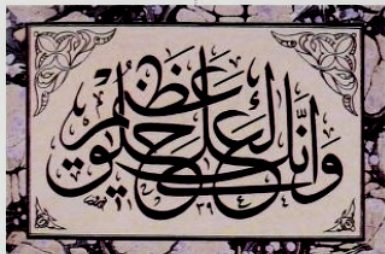 وَانَّكَ لَعَلى خُلُقٍ عَظيمٍ